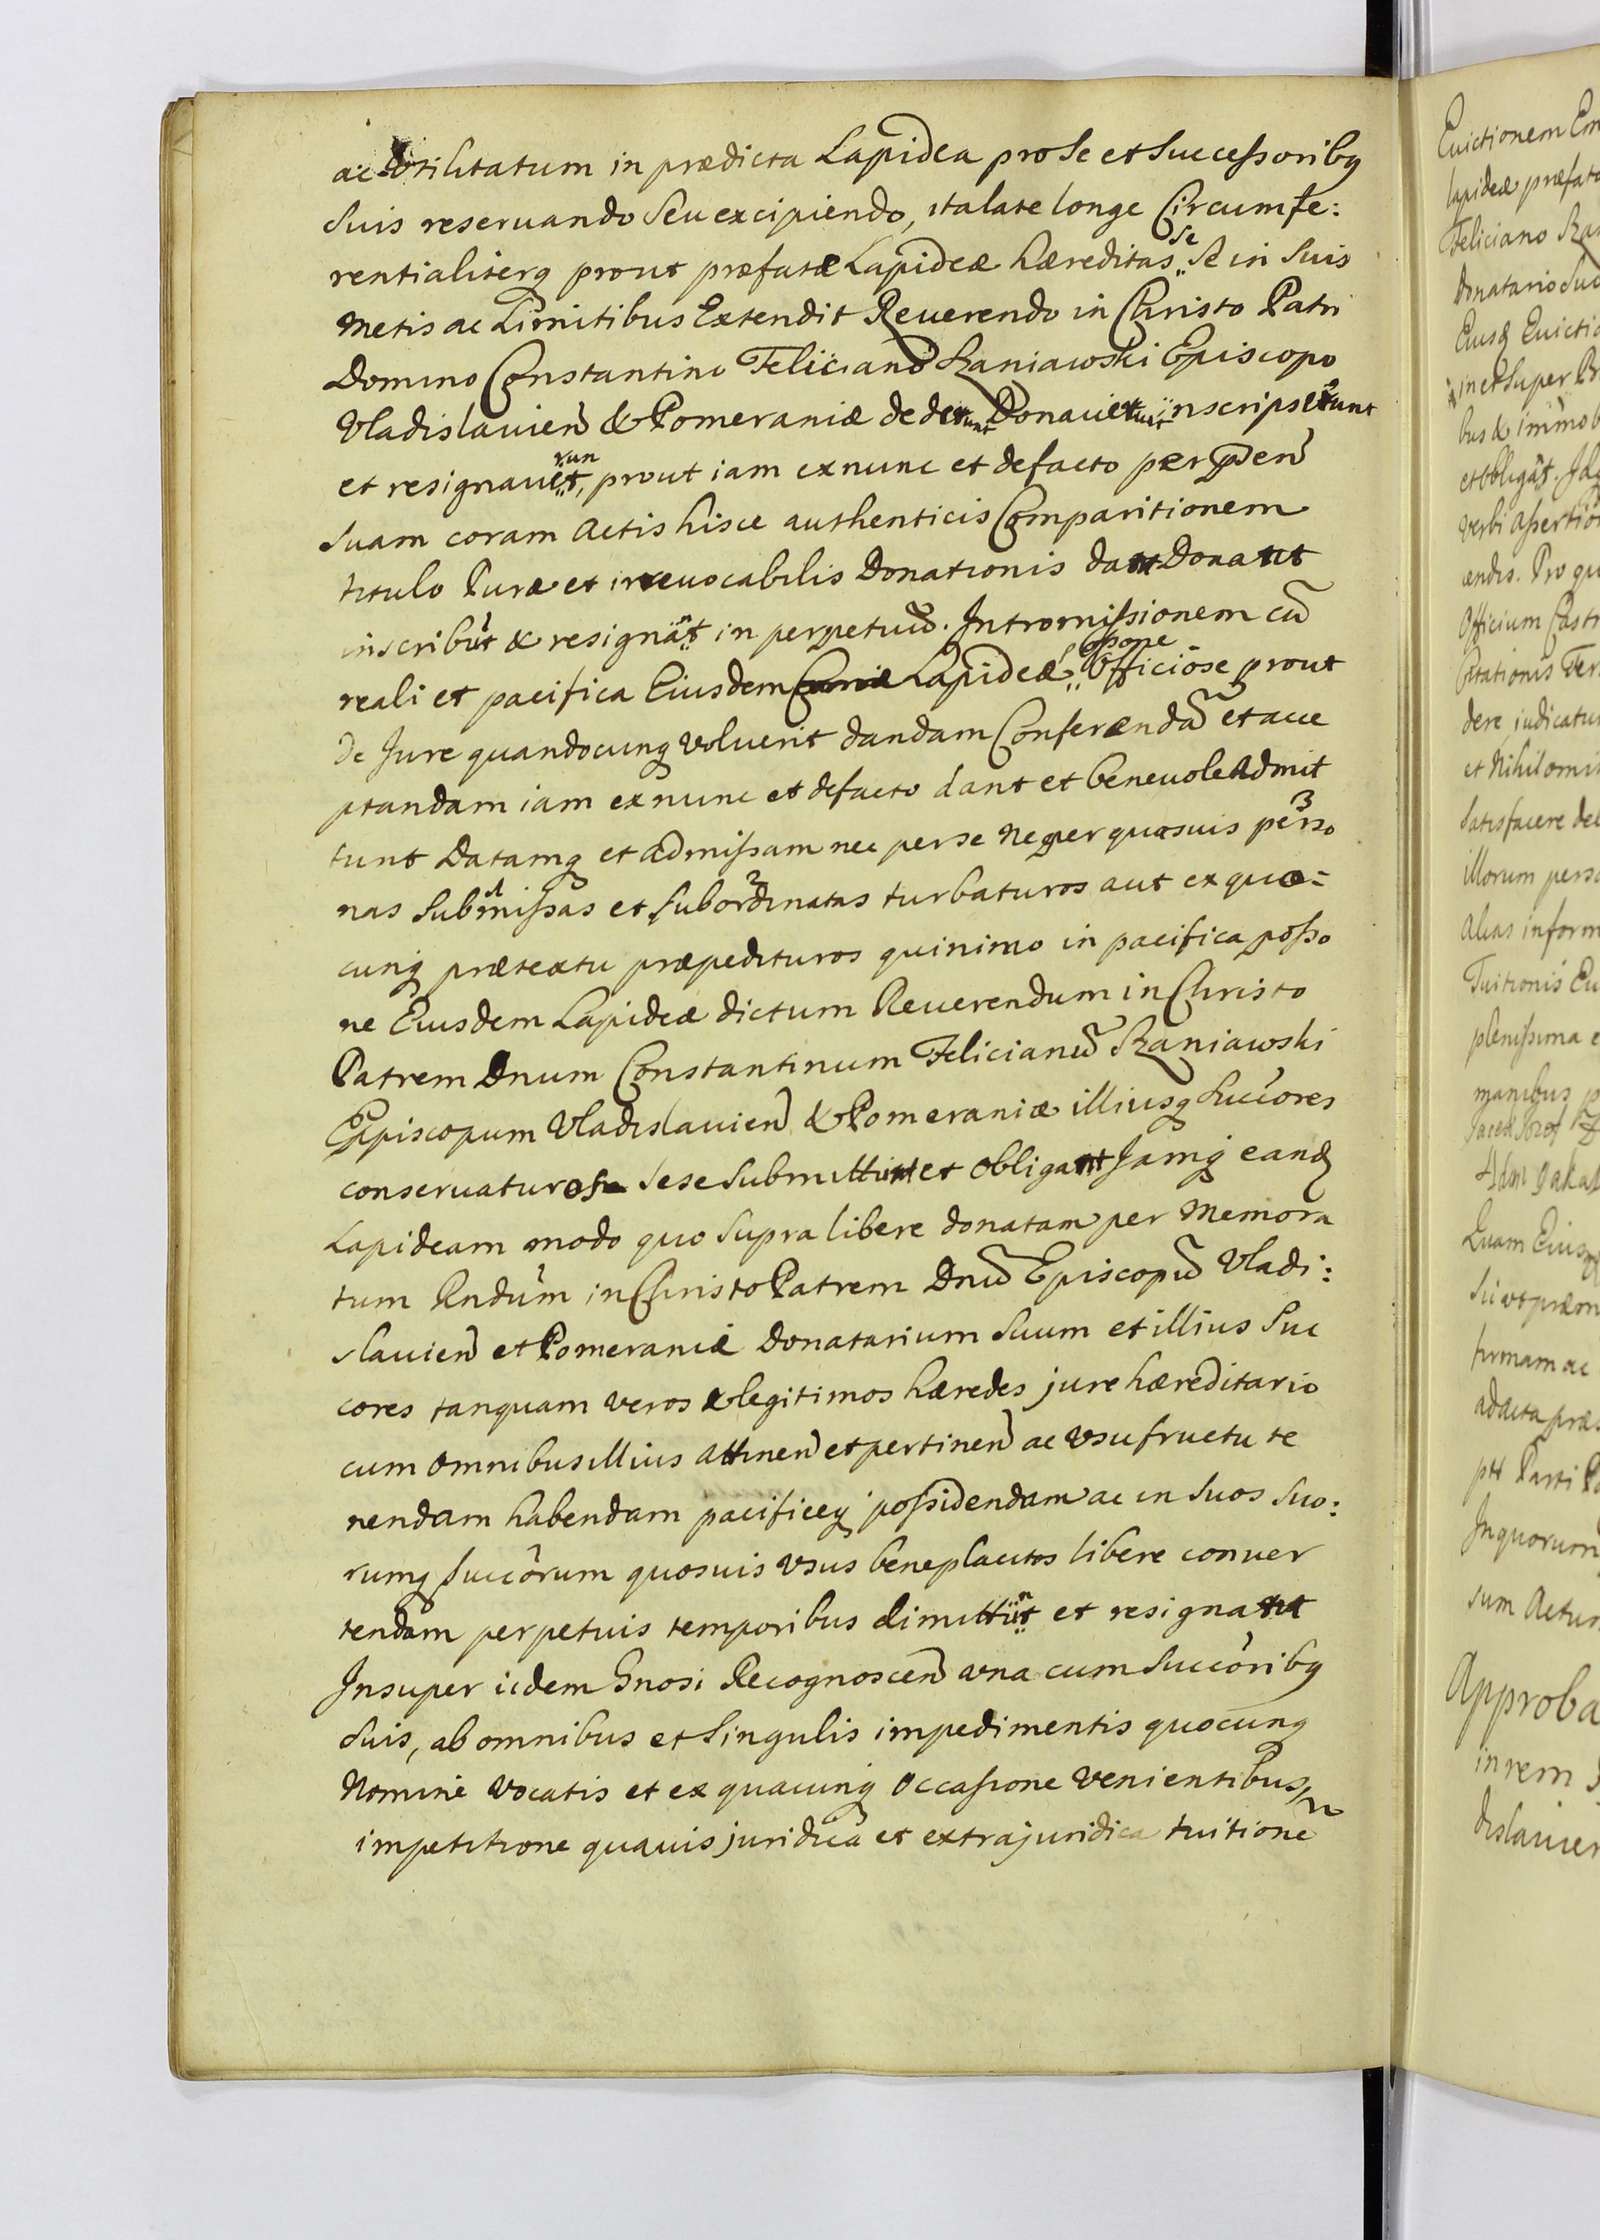 ac Utilitatum in prædicta Lapidea pro Se et Successoribq
Suis reservando Seu excipiendo, ita late longe Circumfe:
rentialiterq prout præfatæ Lapideæ hæreditas se in Suis
Metis ac Limitibus Extendit Reuerendo in Christo Patri
Domino Constantino Feliciano Szaniawski Episcopo
Vladislauien & Pomeraniæ dederunt Donauerunt inscripserunt
et resignauerunt, prout iam ex nunc et de facto per pñen
Suam coram Actis hisce authenticis Comparitionem
titulo Puræ et irreuocabilis Donationis dant Donant
inscribũt & resignãt in perpetuũ. Intromissionem cũ
reali et pacifica Eiusdem Lapideæ possone Officiose prout
de Jure quandocunq voluerit dandam Conferendã et acce
ptandam iam ex nunc et de facto dant et beneuole Admit
tunt Datamq et admissam nec per se Neq per quasuis perso
nas Submissas et Subordinatas turbaturos aut ex quo=
cunq prætextu præpedituros quinimo in pacifica posso
ne Eiusdem Lapideæ dictum Reuerendum in Christo
Patrem Dnum Constantinum Felicianũ Szaniawski
Episcopum Vladislauien & Pomeraniæ illiusq Succores
conseruaturos sese Submittunt et Obligant Jamq eand
Lapideam modo quo Supra libere donatam per Memora
tum Rndum in Christo Patrem Dnũ Episcopũ Vladi:
slauien et Pomeraniæ Donatarium Suum et illius Suc
cores tanquam veros & legitimos hæredes jure hæreditario
cum Omnibus illius Attinen et pertinen ac Vsufructu te
nendam habendam pacificeq possidendam ac in Suos Suo:
rumq Succorum quosuis vsus beneplacitos libere conuer
tendam perpetuis temporibus dimittũt et resignant
Insuper iidem Gnosi Recognoscen vna cum Succoribq
Suis, ab omnibus et Singulis impedimentis quocunq
Nomine vocatis et ex quacunq Occasione Venientibus
impetitione quauis juridica et extrajuridica tuitione
Euictionem
lapideæ præfatæ
Feliciano
Donatario Suc
Eiusq
in et Super
bus & immob
et Obligãt.
verbi Assertio
endis. Pro qu
Officium Castr
Citationis Ter
dere judicatu
et Nihilomi
Satisfacere de
illorum perso
alias inform
Tuitionis Eu
plenissima e
manibus
Quam Eius
firmam ac
ad acta præs
Parti
In quorum
sum Actu
Approba
in rem
dislauien